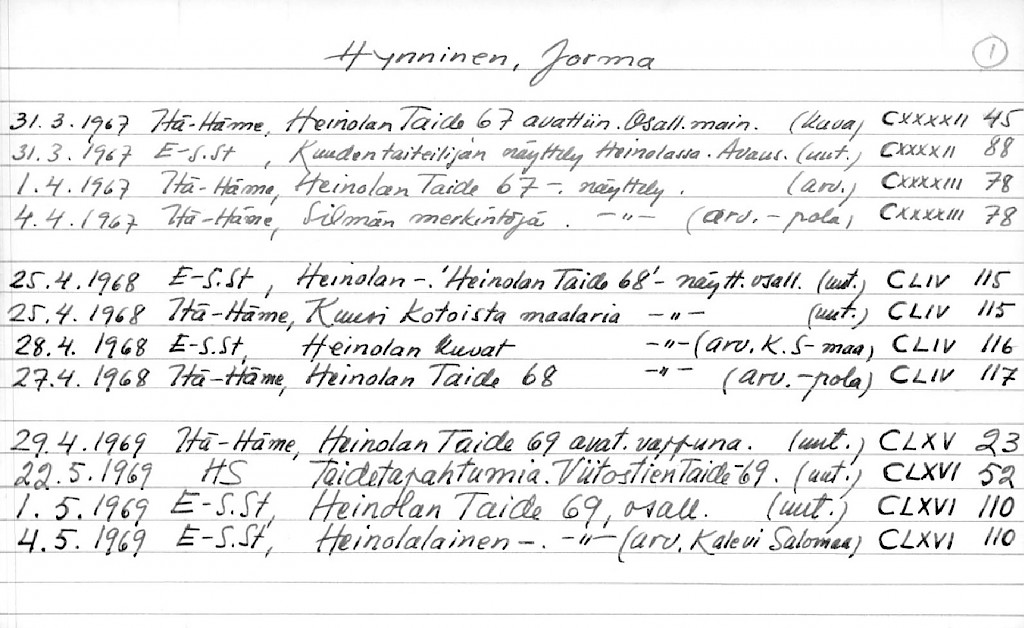 Hynninen, Jorma 1
31.3.1967 Itä-Häme, Heinolan Taide 67 avattiin. Osall. main. (kuva) CXXXXII 45
31.3.1967 E-S.St, Kuuden taiteilijan näyttely Heinolassa. Avaus. (uut.) CXXXXII 88
1.4.1967 Itä-Häme, Heinolan Taide 67-. näyttely. (arv.) CXXXXIII 78
4.4.1967 Itä-Häme, Silmän merkintöjä. -"- (arv. -pola) CXXXXIII 78
25.4.1968 E-S.St, Heinolan -. 'Heinolan Taide 68'- näytt. osall. (uut.) CLIV 115
25.4.1968 Itä-Häme, Kuusi kotoista maalaria -"- (uut.) CLIV 115
28.4.1968 E-S.St, Heinolan kuvat -"- (arv. K.S-maa) CLIV 116
27.4.1968 Itä-Häme, Heinolan Taide 68 -"- (arv. -pola) CLIV 117
29.4.1969 Itä-Häme, Heinolan Taide 69 avat. vappuna. (uut.) CLXV 23
22.5.1969 HS Taidetapahtumia. Viitostien Taide-69. (uut.) CLXVI 52
1.5.1969 E-S.St, Heinolan Taide 69, osall. (uut.) CLXVI 110
4.5.1969 E-S.St, Heinolalainen -. -"- (arv. Kalevi Salomaa) CLXVI 110